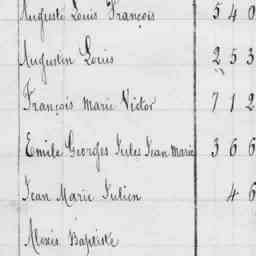 Auguste Louis François 5 4 0
Augustin Louis 2 5 3
François Marie Victor 7 1 2
Emile Georges Jules Jean Marie 3 6 6
Jean Marie Julien 4 6
Alexis Baptiste